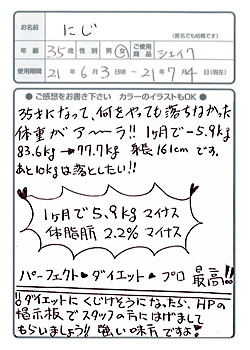 お名前 にじ
(匿名でも結構です)
年齢 35才 性別 男・女 ご使用商品 シェイク
使用期間 21年6月3日～21年7月4日(現在)
●ご感想をお書き下さい カラーのイラストもOK●
35才になって、何をやっても落ちなかった
体重がア〜〜ラ!! 1ヶ月で−5.9kg
83.6kg→77.7kg 身長161cmです。
あと10kgは落としたい!!
1ヶ月で5.9kgマイナス
体脂肪2.2%マイナス
パーフェクト♥ダイエット♥プロ 最高!!
!!ダイエットにくじけそうになったら、HPの
掲示板でスタッフの方にはげまして
もらいましょう!! 強い味方ですよ!